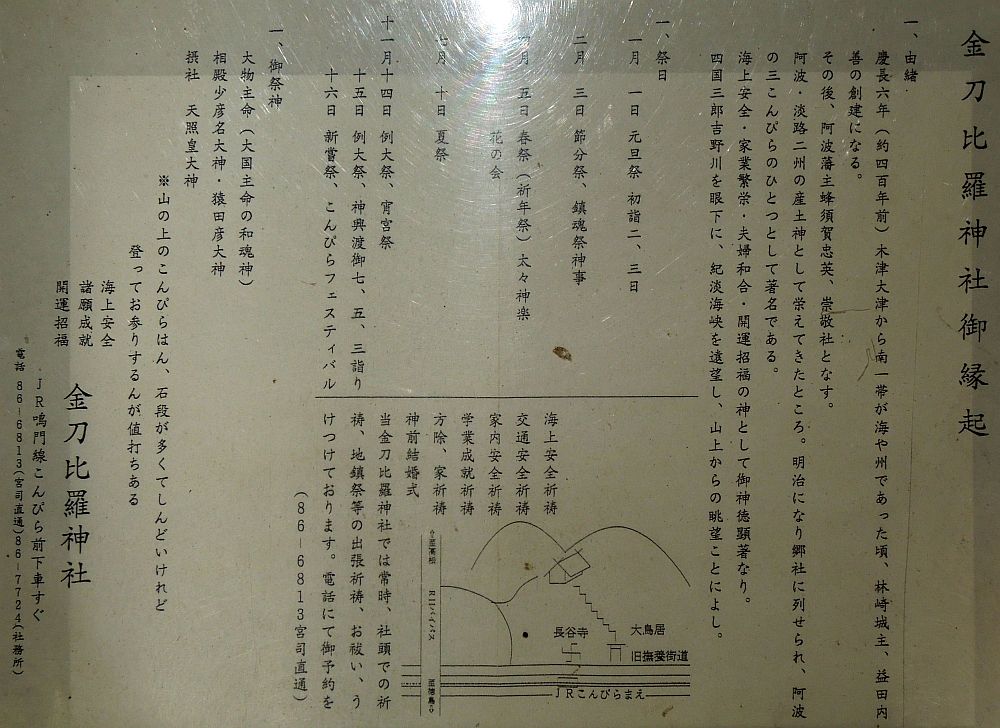 金刀比羅神社御縁起
一、由緒
慶長六年（約四百年前）木津大津から南一帯が海や州であった頃、林崎城主、益田内
善の創建になる。
その後、阿波藩主蜂須賀忠英、崇敬社となす。
阿波・淡路二州の産土神として栄えてきたところ。明治になり郷社に列せられ、阿波
の三こんぴらのひとつとして著名である。
海上安全・家業繁栄・夫婦和合・開運招福の神として御神徳顕著なり。
四国三郎吉野川を眼下に、紀淡海峡を遠望し、山上からの眺望ことによし。
一、祭日
一月 一日 元旦祭 初詣二、三日
二月 三日 節分祭、鎮魂祭神事
四月 五日 春祭（祈年祭）太々神楽
花の会
七月 十日 夏祭
十一月十四日 例大祭、宵宮祭
十五日 例大祭、神輿渡御七、五、三詣り
十六日 新嘗祭、こんぴらフェスティバル
一、御祭神
大物主命（大国主命の和魂神）
相殿少彦名大神・猿田彦大神
摂社 天照皇大神
※山の上のこんぴらはん、石段が多くてしんどいけれど
登ってお参りするんが値打ちある
海上安全祈祷
交通安全祈祷
家内安全祈祷
学業成就祈祷
方除、家祈祷
神前結婚式
当金刀比羅神社では常時、社頭での祈
祷、地鎮祭等の出張祈祷、お祓い、う
けつけております。電話にて御予約を
（86−6813宮司直通）
⇦至高松
R11バイパス
至徳島⇨
長谷寺
大鳥居
旧撫養街道
JRこんぴらまえ
海上安全
諸願成就
開運招福
金刀比羅神社
JR鳴門線こんぴら前下車すぐ
電話 86−6813(宮司直通)86−7724(社務所)